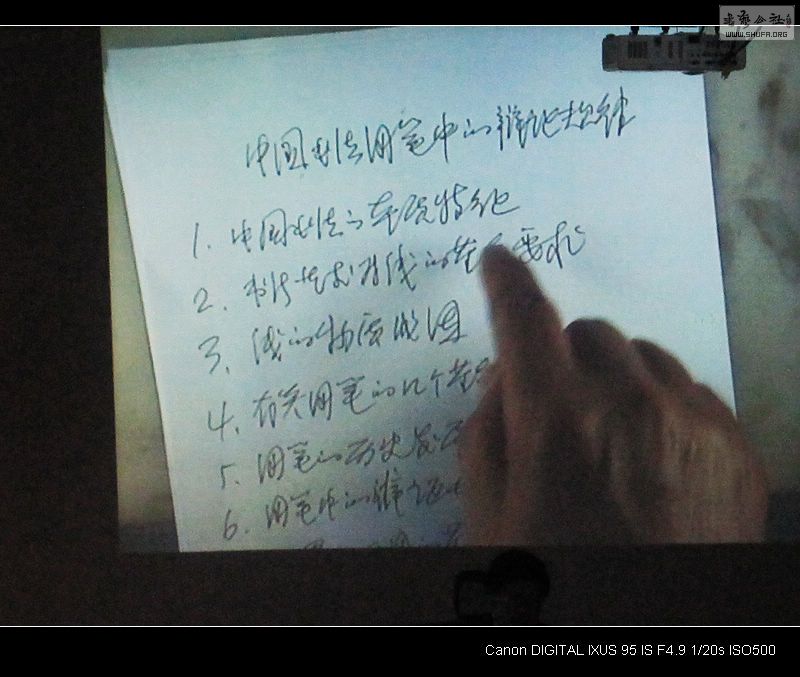 书法公社
WWW.SHUFA.ORG
中国书法用笔中的辩证
1. 中国书法的基础特征
2. 书法艺术对线的基本要求
3. 线的物质成因
4. 有关用笔的几个基
5. 用笔的历史发
6. 用笔中的辩证
Canon DIGITAL IXUS 95 IS F4.9 1/20s ISO500